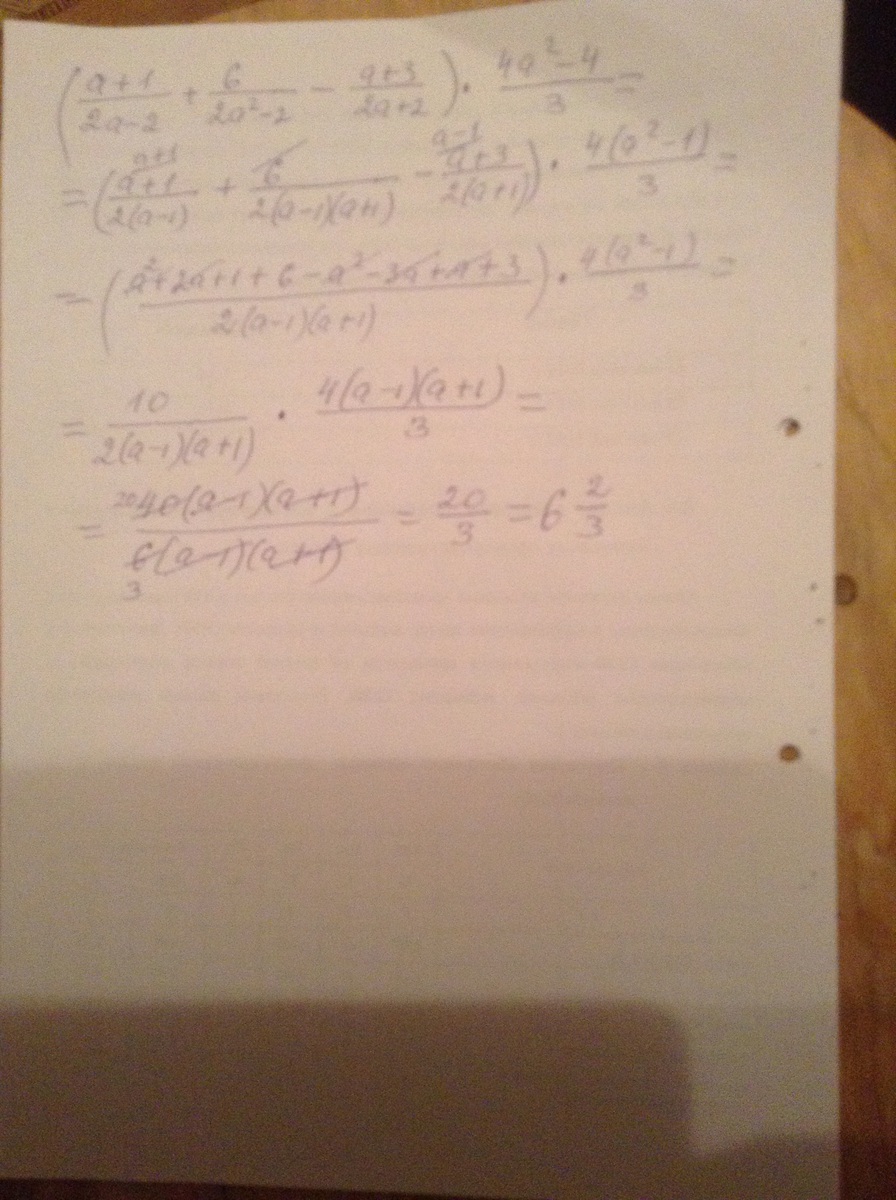 (a+1/2a-2 + 6/2a²-2 - a+3/2a+2) · 4a²-4/3 =
= (a+1 a+1/2(a-1) + 6/2(a-1)(a+1) - a-1 a+3/2(a+1)) · 4(a²-1)/3 =
= (a²+2a+1+6-a²-3a+a+3/2(a-1)(a+1)) · 4(a²-1)/3 =
= 10/2(a-1)(a+1) · 4(a-1)(a+1)/3 =
= 20 40(a-1)(a+1)/6(a-1)(a+1) 3 = 20/3 = 6 2/3